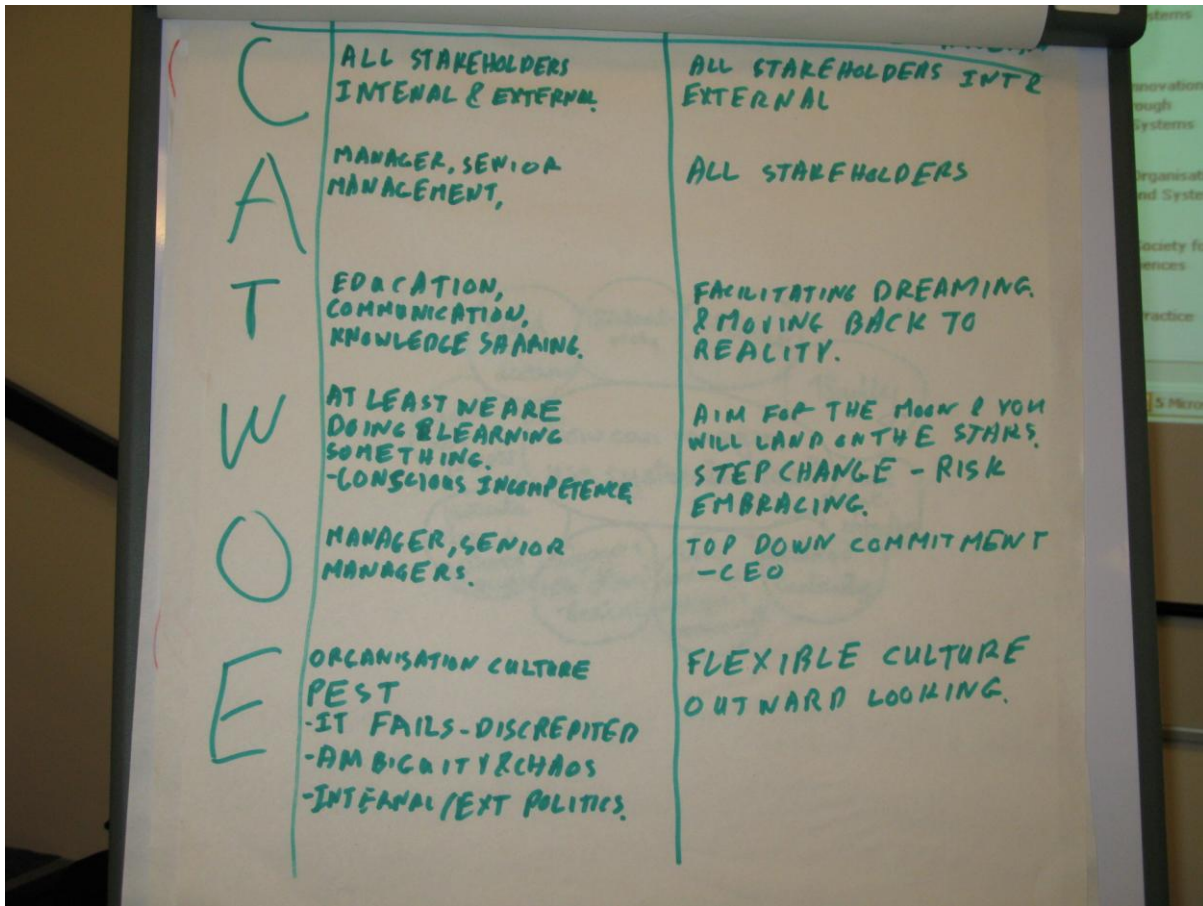 C
ALL STAKEHOLDERS
INTENAL & EXTERNAL.
ALL STAKEHOLDERS INT &
EXTERNAL
A
MANAGER, SENIOR
MANAGEMENT,
ALL STAKEHOLDERS
T
EDUCATION,
COMMUNICATION,
KNOWLEDGE SHARING.
FACILITATING DREAMING.
& MOVING BACK TO
REALITY.
W
AT LEAST WE ARE
DOING & LEARNING
SOMETHING.
-CONSCIOUS INCOMPETENCE
AIM FOR THE MOON & YOU
WILL LAND ON THE STARS.
STEP CHANGE - RISK
EMBRACING.
O
MANAGER, SENIOR
MANAGERS.
TOP DOWN COMMITMENT
-CEO
E
ORGANISATION CULTURE
PEST
-IT FAILS-DISCREDITED
-AMBIGUITY & CHAOS
-INTERNAL/EXT POLITICS.
FLEXIBLE CULTURE
OUTWARD LOOKING.
Systems
Practice